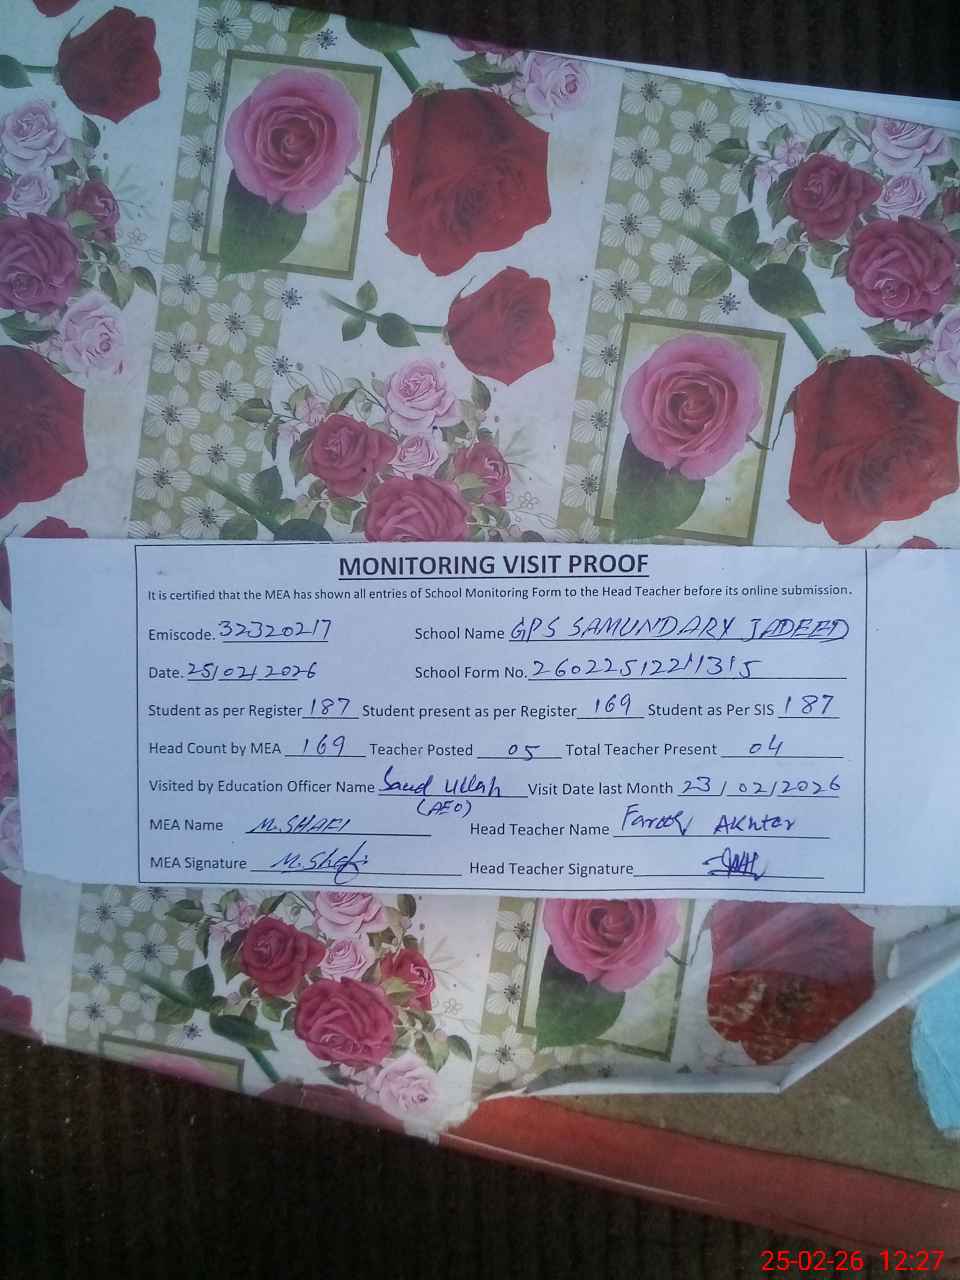 MONITORING VISIT PROOF
It is certified that the MEA has shown all entries of School Monitoring Form to the Head Teacher before its online submission.
Emiscode. 32320217 School Name GPS SAMUNDARY JADEED
Date. 25/02/2026 School Form No. 260225122111315
Student as per Register 187 Student present as per Register 169 Student as Per SIS 187
Head Count by MEA 169 Teacher Posted 05 Total Teacher Present 04
Visited by Education Officer Name Saud Ullah Visit Date last Month 23/02/2026
(AEO)
MEA Name M. SHAFI Head Teacher Name Farooq Akhtar
MEA Signature M. Shafi Head Teacher Signature
25-02-26 12:27